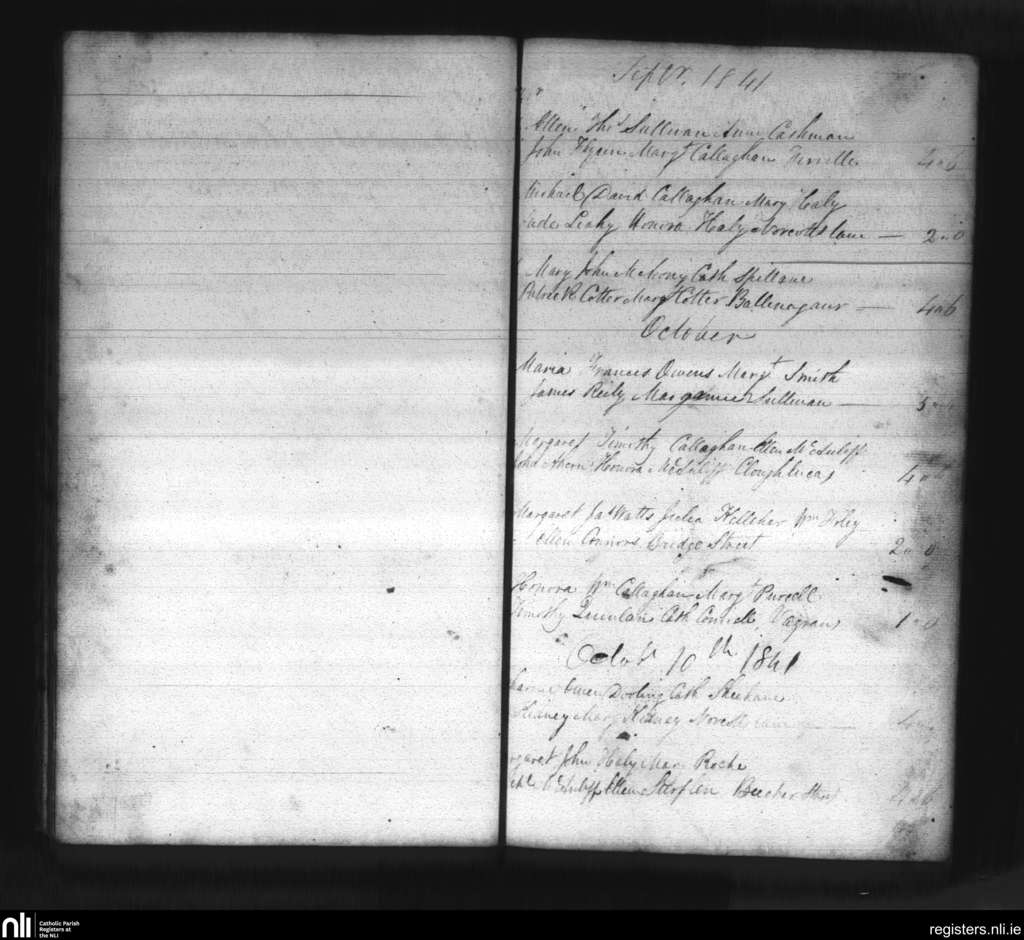 Septr. 1841
Ellen Thos Sullivan Anny Cashman
John Flynn Margt Callaghan 4 " 6
Michael David Callaghan Mary Haly
Leahy Honora Haly Norcotts lane — 2 " 0
Mary John McMony Cath Spillane
Patrick Cotter Margt Cotter Ballinagaur — 4 " 6
October
Maria Frances Owens Margt Smith
James Reily Sullivan —
Margaret Timothy Callaghan Ellen McAuliff
Ahern Honora McAuliff Cloughlucas 4 "
Margaret Jas Watts Julia Kelleher Wm Foley
Ellen Connors Bridge Street 2 " 0
Honora Wm Callaghan Margt Purcell
Timothy Quinlan Cath Connell Vagrans 1 " 0
Octobr 10th 1841
Owen Dooling Cath Sheehane
Mary Kidney
John Haly Mary Roche
McAuliff Ellen Beecher Street 2 " 6
nli
Catholic Parish
Registers at
the NLI
registers.nli.ie